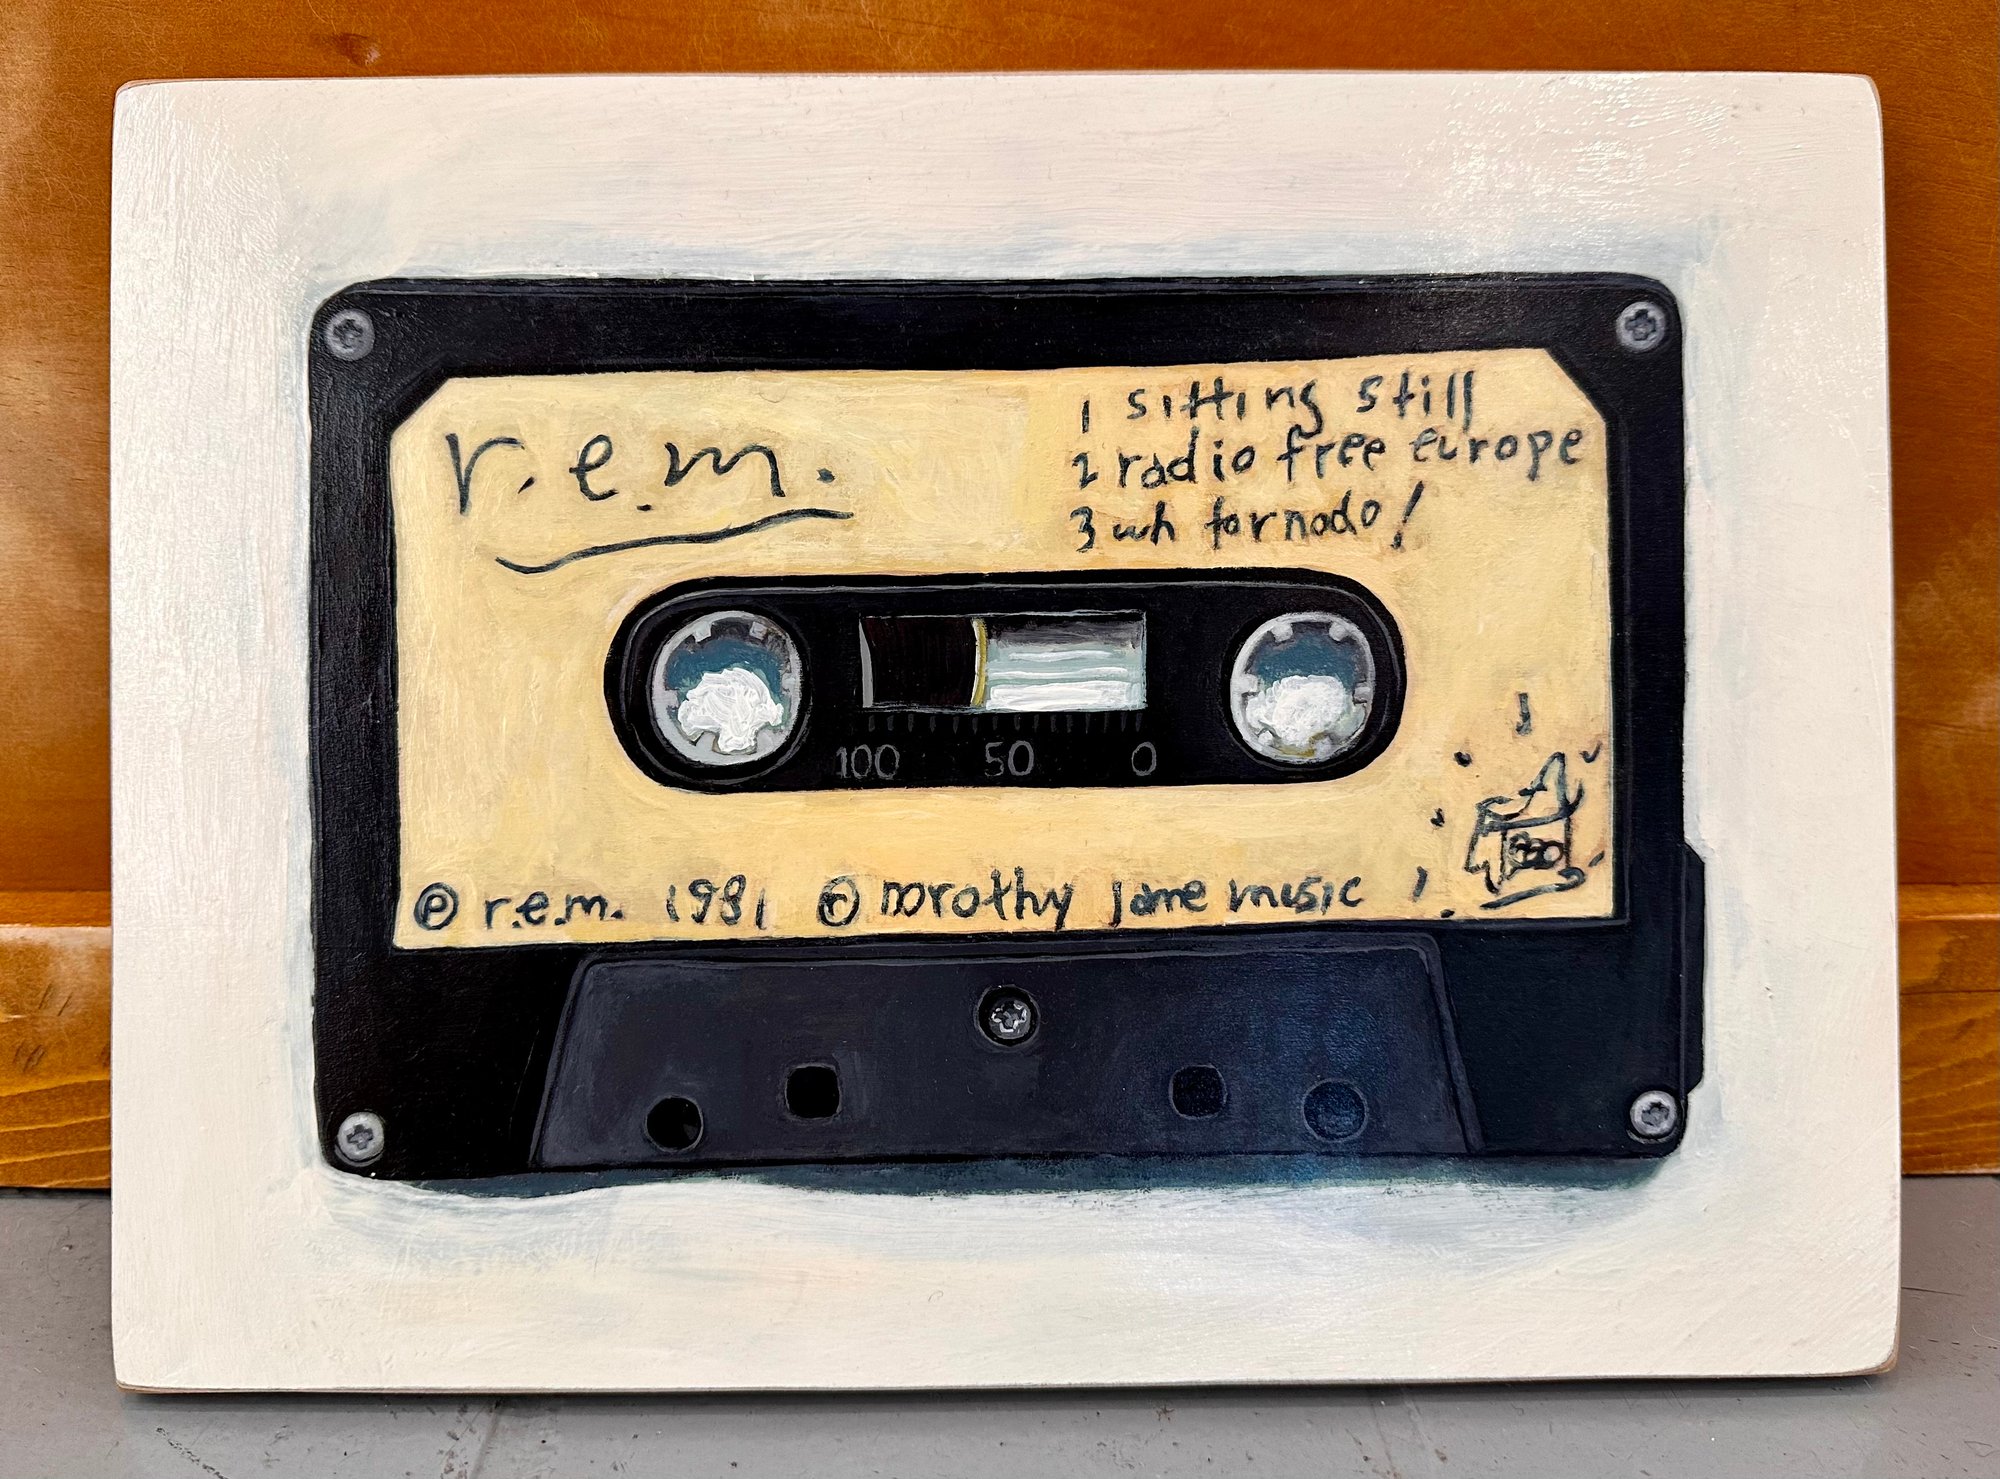 r.e.m.
1 sitting still
2 radio free europe
3 wh tornado!
100 50 0
℗ r.e.m. 1981 © Dorothy Jane music